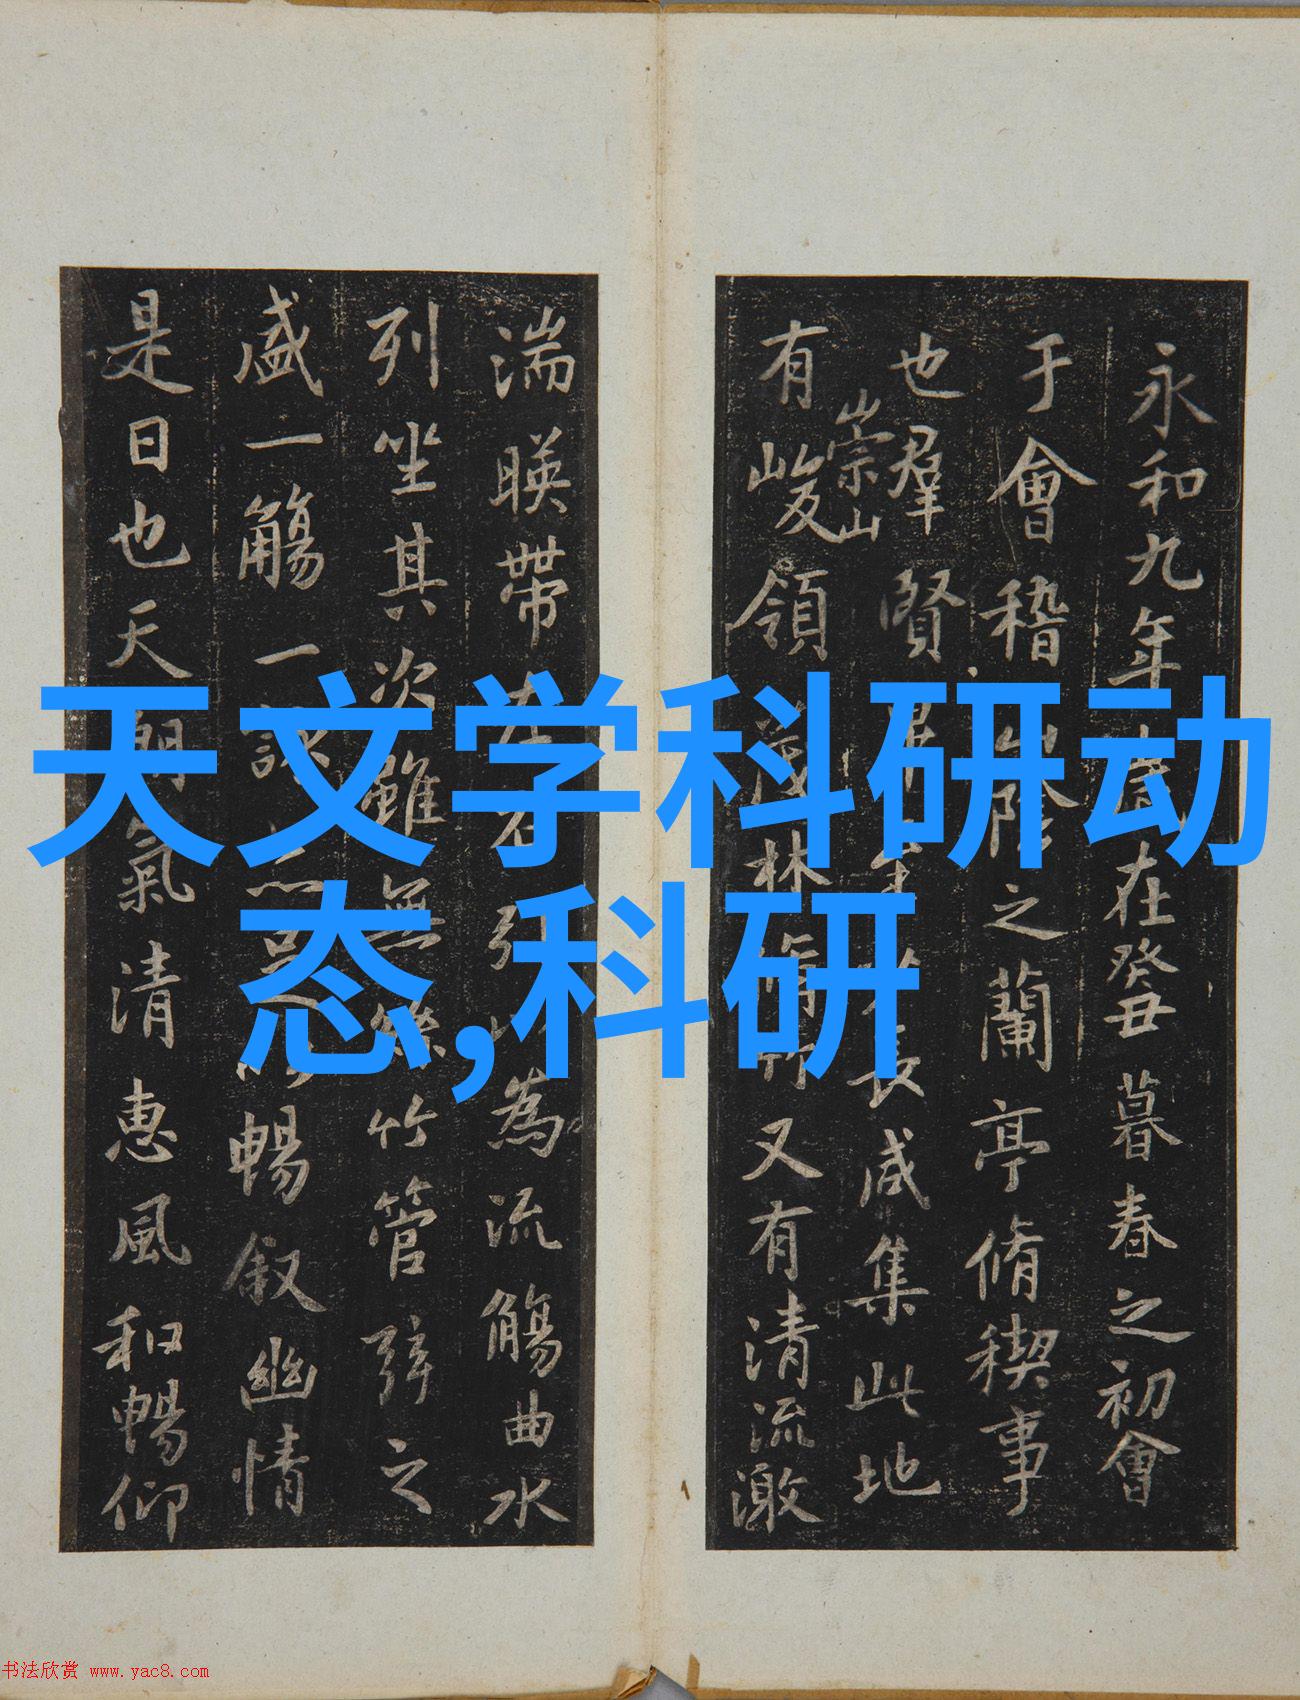 永和九年歲在癸丑暮春之初會
于會稽山陰之蘭亭脩稧事
也羣賢畢至少長咸集此地
有崇山峻領茂林脩竹又有清流激
湍暎帶左右引以為流觴曲水
列坐其次雖無絲竹管弦之
盛一觴一詠亦足以暢叙幽情
是日也天朗氣清惠風和暢仰
天文学科研动
态,科研
书法欣赏 www.yac8.com